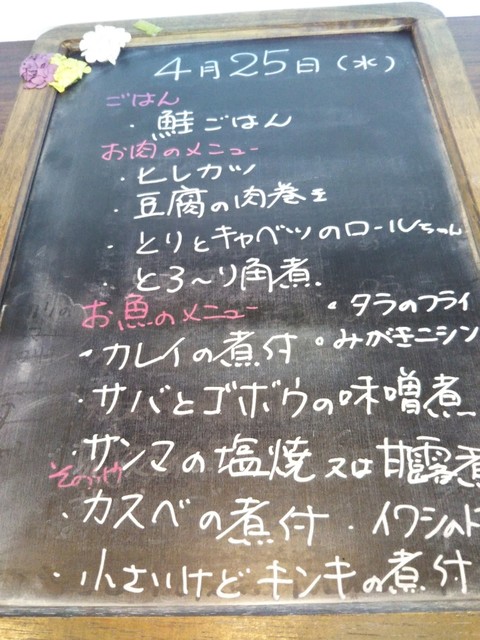 4月25日(水)
ごはん
・鮭ごはん
お肉のメニュー
・ヒレカツ
・豆腐の肉巻き
・とりとキャベツのロールちゃん
・とろ〜り角煮
お魚のメニュー
・タラのフライ
・カレイの煮付
・みがきニシン
・サバとゴボウの味噌煮
・サンマの塩焼又は甘露煮
・カスベの煮付
・イワシの
・小さいけどキンキの煮付